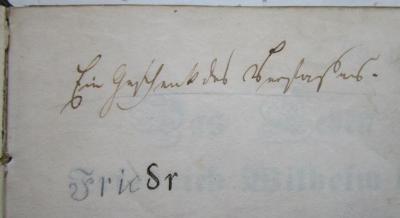 Ein Geschenk des Verfassers.
Friedr